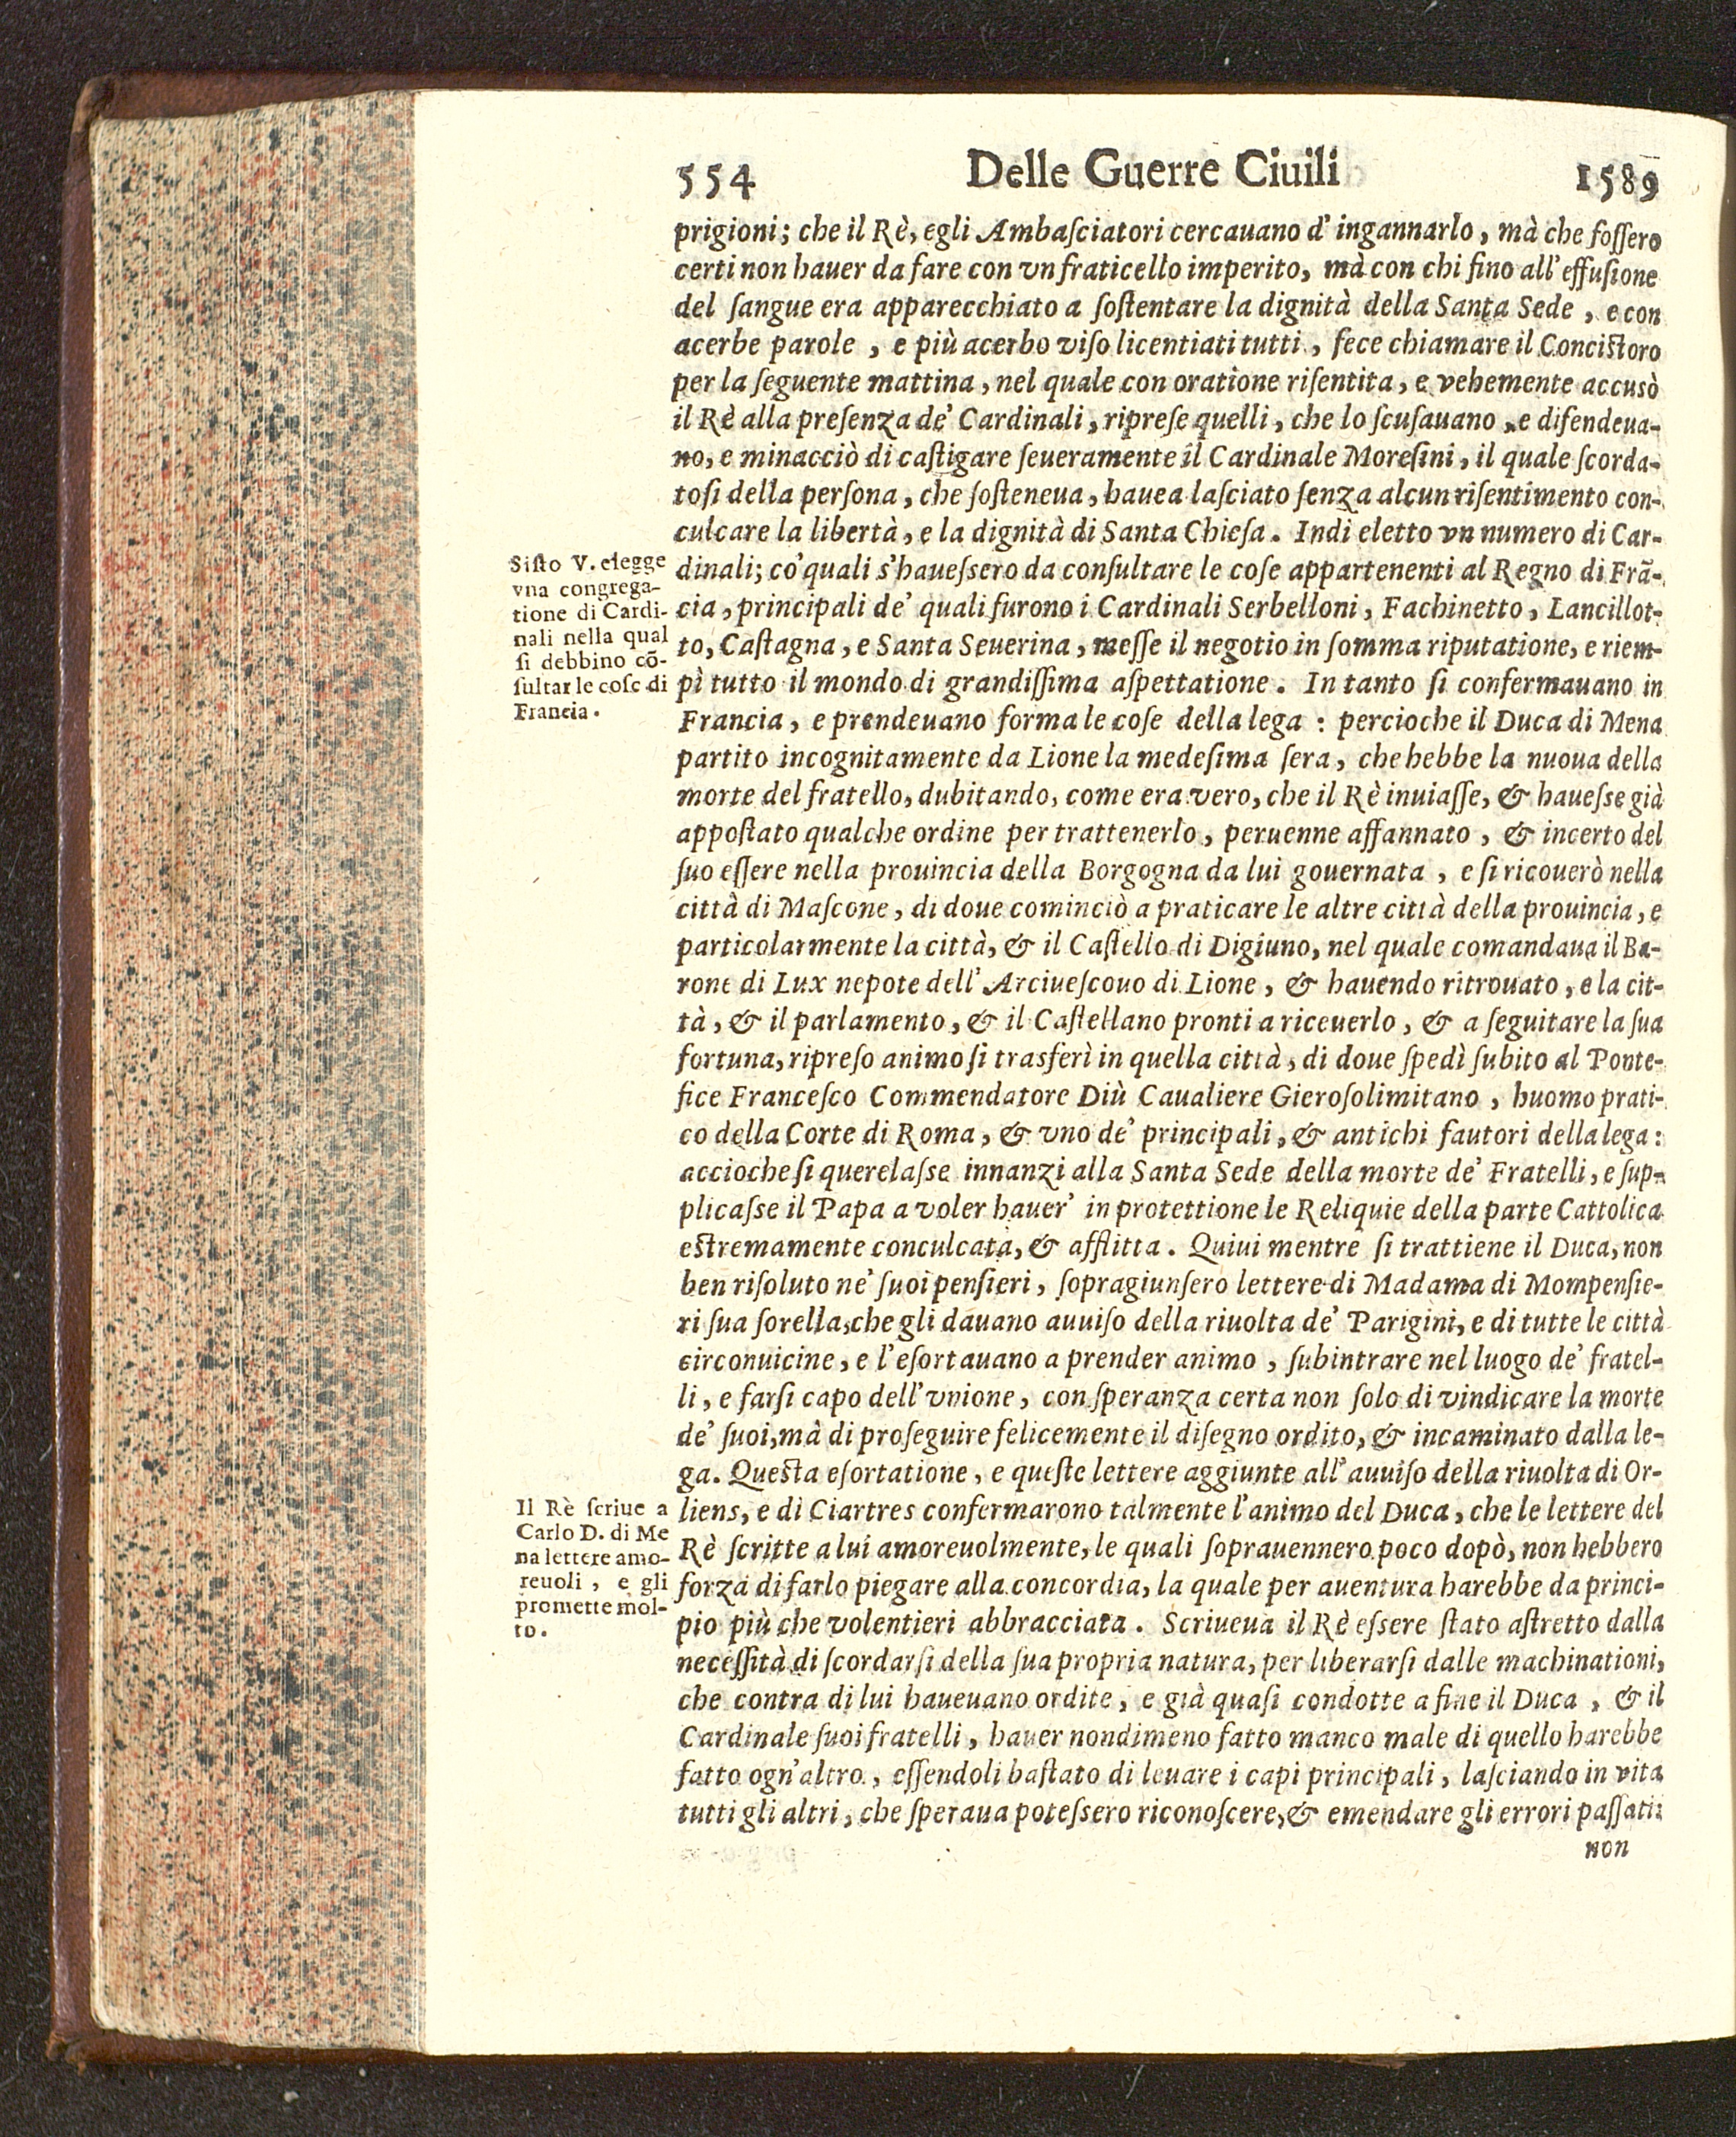 554 Delle Guerre Ciuili 1589
prigioni; che il Rè, egli Ambaſciatori cercauano d'ingannarlo, mà che foſſero
certi non hauer da fare con vn fraticello imperito, mà con chi fino all'effuſione
del ſangue era apparecchiato a ſoſtentare la dignità della Santa Sede, e con
acerbe parole, e più acerbo viſo licentiati tutti, fece chiamare il Conciſtoro
per la ſeguente mattina, nel quale con oratione riſentita, e vehemente accusò
il Rè alla preſenza de' Cardinali, ripreſe quelli, che lo ſcuſauano, e difendeua-
no, e minacciò di caſtigare ſeueramente il Cardinale Moreſini, il quale ſcorda-
toſi della perſona, che ſoſteneua, hauea laſciato ſenza alcun riſentimento con-
culcare la libertà, e la dignità di Santa Chieſa. Indi eletto vn numero di Car-
dinali; co' quali s'haueſsero da conſultare le coſe appartenenti al Regno di Frã-
cia, principali de' quali furono i Cardinali Serbelloni, Fachinetto, Lancillot-
to, Caſtagna, e Santa Seuerina, meſſe il negotio in ſomma riputatione, e riem-
pì tutto il mondo di grandiſſima aſpettatione. In tanto ſi confermauano in
Francia, e prendeuano forma le coſe della lega: percioche il Duca di Mena
partito incognitamente da Lione la medeſima ſera, che hebbe la nuoua della
morte del fratello, dubitando, come era vero, che il Rè inuiaſſe, & haueſse già
appoſtato qualche ordine per trattenerlo, peruenne affannato, & incerto del
ſuo eſſere nella prouincia della Borgogna da lui gouernata, e ſi ricouerò nella
città di Maſcone, di doue cominciò a praticare le altre città della prouincia, e
particolarmente la città, & il Caſtello di Digiuno, nel quale comandaua il Ba-
rone di Lux nepote dell'Arciueſcouo di Lione, & hauendo ritrouato, e la cit-
tà, & il parlamento, & il Caſtellano pronti a riceuerlo, & a ſeguitare la ſua
fortuna, ripreſo animo ſi trasferì in quella città, di doue ſpedì ſubito al Ponte-
fice Franceſco Commendatore Diù Caualiere Gieroſolimitano, huomo prati-
co della Corte di Roma, & vno de' principali, & antichi fautori della lega:
accioche ſi querelaſse innanzi alla Santa Sede della morte de' Fratelli, e ſup-
plicaſse il Papa a voler hauer' in protettione le Reliquie della parte Cattolica
eſtremamente conculcata, & afflitta. Quiui mentre ſi trattiene il Duca, non
ben riſoluto ne' ſuoi penſieri, ſopragiunſero lettere di Madama di Mompenſie-
ri ſua ſorella, che gli dauano auuiſo della riuolta de' Parigini, e di tutte le città
circonuicine, e l'eſortauano a prender animo, ſubintrare nel luogo de' fratel-
li, e farſi capo dell'vnione, con ſperanza certa non ſolo di vindicare la morte
de' ſuoi, mà di proſeguire felicemente il diſegno ordito, & incaminato dalla le-
ga. Queſta eſortatione, e queſte lettere aggiunte all'auuiſo della riuolta di Or-
liens, e di Ciartres confermarono talmente l'animo del Duca, che le lettere del
Rè ſcritte a lui amoreuolmente, le quali ſoprauennero poco dopò, non hebbero
forza di farlo piegare alla concordia, la quale per auentura harebbe da princi-
pio più che volentieri abbracciata. Scriueua il Rè eſsere ſtato aſtretto dalla
neceſſità di ſcordarſi della ſua propria natura, per liberarſi dalle machinationi,
che contra di lui haueuano ordite, e già quaſi condotte a fine il Duca, & il
Cardinale ſuoi fratelli, hauer nondimeno fatto manco male di quello harebbe
fatto ogn'altro, eſſendoli baſtato di leuare i capi principali, laſciando in vita
tutti gli altri, che ſperaua poteſsero riconoſcere, & emendare gli errori paſſati:
non
Siſto V. elegge
vna congrega-
tione di Cardi-
nali nella qual
ſi debbino cõ-
ſultar le coſe di
Francia.
Il Rè ſcriue a
Carlo D. di Me
na lettere amo-
reuoli, e gli
promette mol-
to.